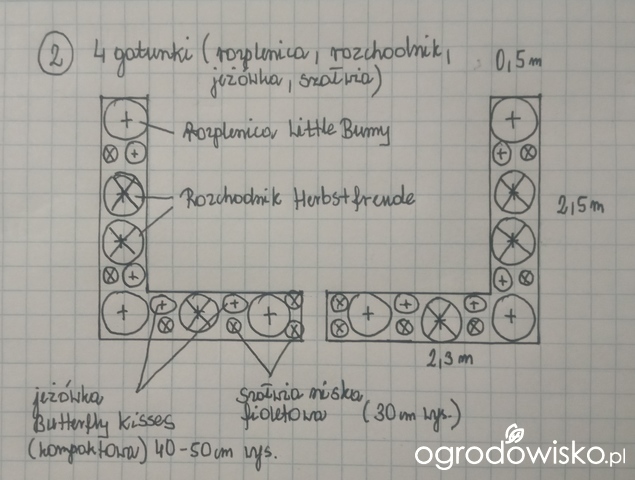 2 4 gatunki (rozplenica, rozchodnik,
jeżówka, szałwia)
0,5m
Rozplenica Little Bunny
Rozchodnik Herbstfreude
2,5m
2,3m
jeżówka
Butterfly Kisses
(kompaktowa) 40-50cm wys.
szałwia niska
fioletowa (30cm wys.)
ogrodowisko.pl